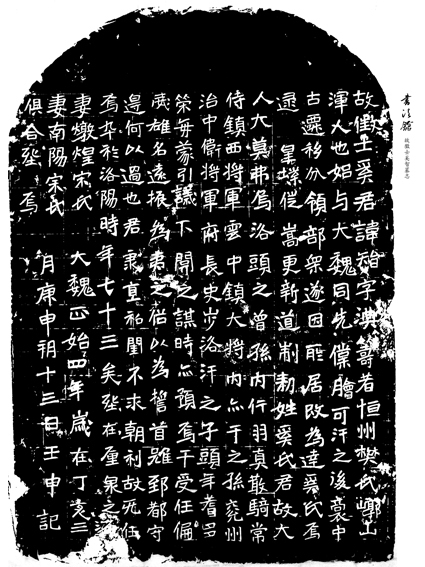 書法館
故徵士奚智墓志
故徵士奚君諱智字洪籌者恒州樊氏山
渾人也始与大魏同先僕膾可汗之後裔中
古遷移分領部衆遂因所居改為達奚氏焉
逮 皇業徙嵩更新道制勅姓奚氏君故大
人大莫弗烏洛頭之曾孫内行羽真散騎常
侍鎮西將軍雲中鎮大將内亦干之孫兖州
治中衛將軍府長史步洛汗之子頭年耆多
策每蒙引議下關之謀時亦預焉干受任偏
威雄名遠振為夷之俗以為誓首雖郅都守
邊何以過也君秉直私閨不求朝利故死任
焉卒於洛陽時年七十三矣葬在廛泉之源
妻燉煌宋氏 大魏正始四年歲在丁亥三
妻南陽宗氏 月庚申朔十三日壬申記
俱合葬焉